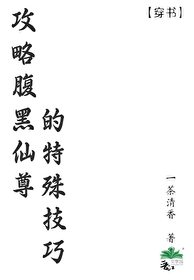 【穿书】
攻略腹黑仙尊
的特殊技巧
一茶清香 著